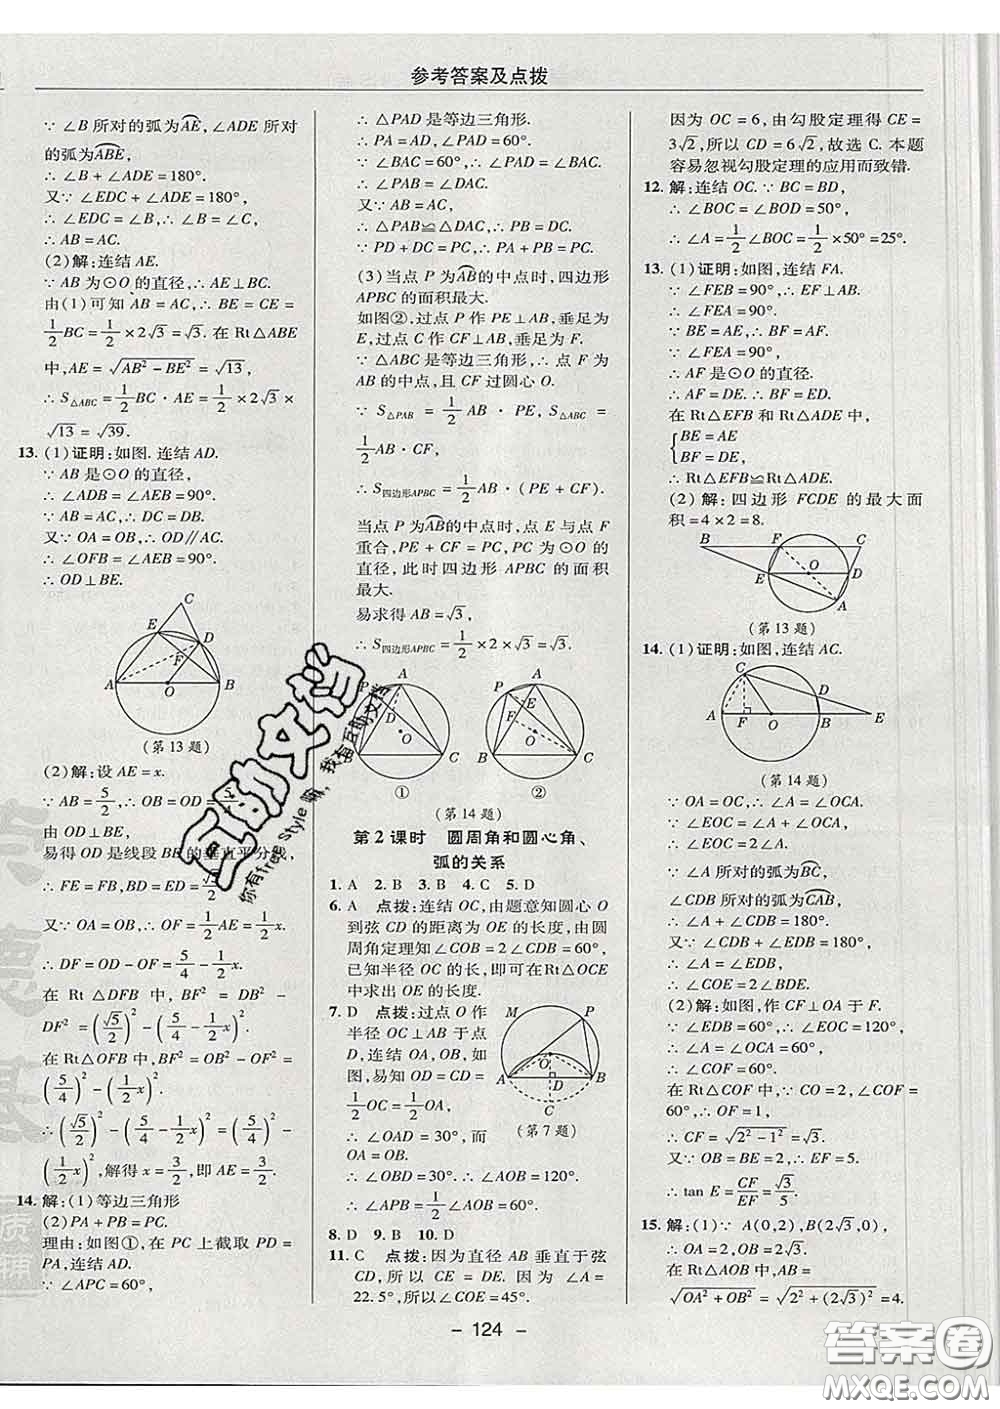 参考答案及点拨
∵ ∠B 所对的弧为AE, ∠ADE 所对
的弧为ABE,
∴ ∠B + ∠ADE = 180°.
又∵ ∠EDC + ∠ADE = 180°,
∴ ∠EDC = ∠B, ∴ ∠B = ∠C,
∴ AB = AC.
(2)解:连结 AE.
∵ AB 为⊙O 的直径, ∴ AE⊥BC.
由(1)可知 AB = AC, ∴ BE = CE =
1/2 BC = 1/2 × 2√3 = √3. 在 Rt△ABE
中, AE = √(AB² - BE²) = √13,
∴ S△ABC = 1/2 BC · AE = 1/2 × 2√3 ×
√13 = √39.
13. (1)证明:如图. 连结 AD.
∵ AB 是⊙O 的直径,
∴ ∠ADB = ∠AEB = 90°.
∵ AB = AC, ∴ DC = DB.
又∵ OA = OB, ∴ OD∥AC.
∴ ∠OFB = ∠AEB = 90°,
∴ OD⊥BE.
C
E
D
F
A
O
B
(第 13 题)
(2)解:设 AE = x.
∵ AB = 5/2, ∴ OB = OD =
易得 OD 是线段 BE 的垂直平分线,
∴ FE = FB, BD = ED = √5/2.
又∵ OA = OB, ∴ OF = 1/2 AE = 1/2 x.
∴ DF = OD - OF = 5/4 - 1/2 x.
在 Rt △DFB 中, BF² = DB² -
DF² = (√5/2)² - (5/4 - 1/2 x)².
在 Rt△OFB 中, BF² = OB² - OF² =
(5/4)² - (1/2 x)²,
∴ (√5/2)² - (5/4 - 1/2 x)² = (5/4)² -
(1/2 x)², 解得 x = 3/2, 即 AE = 3/2.
14. 解:(1)等边三角形
(2)PA + PB = PC.
理由:如图①, 在 PC 上截取 PD =
PA, 连结 AD.
∵ ∠APC = 60°,
∴ △PAD 是等边三角形.
∴ PA = AD, ∠PAD = 60°.
∵ ∠BAC = 60°, ∴ ∠PAD = ∠BAC,
∴ ∠PAB = ∠DAC.
又∵ AB = AC,
∴ △PAB≌△DAC, ∴ PB = DC.
∵ PD + DC = PC, ∴ PA + PB = PC.
(3)当点 P 为AB的中点时, 四边形
APBC 的面积最大.
如图②. 过点 P 作 PE⊥AB, 垂足为
E, 过点 C 作 CF⊥AB, 垂足为 F.
∵ △ABC 是等边三角形, ∴ 点 F 为
AB 的中点, 且 CF 过圆心 O.
∵ S△PAB = 1/2 AB · PE, S△ABC =
1/2 AB · CF,
∴ S四边形APBC = 1/2 AB · (PE + CF).
当点 P 为AB的中点时, 点 E 与点 F
重合, PE + CF = PC, PC 为⊙O 的
直径, 此时四边形 APBC 的面积
最大.
易求得 AB = √3,
∴ S四边形APBC = 1/2 × 2 × √3 = √3.
A
P
D
O
B
C
①
A
P
E
F
O
B
C
②
(第 14 题)
第 2 课时 圆周角和圆心角、
弧的关系
1. A 2. B 3. B 4. C 5. D
6. A 点拨:连结 OC, 由题意知圆心 O
到弦 CD 的距离为 OE 的长度, 由圆
周角定理知∠COB = 2∠CDB = 60°,
已知半径 OC 的长, 即可在 Rt△OCE
中求出 OE 的长度.
7. D 点拨:过点 O 作
半径 OC⊥AB 于点
D, 连结 OA, OB, 如
图, 易知 OD = CD =
1/2 OC = 1/2 OA,
∴ ∠OAD = 30°, 而
OA = OB.
∴ ∠OBD = 30°. ∴ ∠AOB = 120°.
∴ ∠APB = 1/2 ∠AOB = 60°.
M
P
O
A
D
B
C
(第 7 题)
8. D 9. B 10. D
11. C 点拨:因为直径 AB 垂直于弦
CD, 所以 CE = DE. 因为 ∠A =
22.5°, 所以∠COE = 45°.
因为 OC = 6, 由勾股定理得 CE =
3√2, 所以 CD = 6√2, 故选 C. 本题
容易忽视勾股定理的应用而致错.
12. 解:连结 OC. ∵ BC = BD,
∴ ∠BOC = ∠BOD = 50°,
∴ ∠A = 1/2 ∠BOC = 1/2 × 50° = 25°.
13. (1)证明:如图, 连结 FA.
∵ ∠FEB = 90°, ∴ ∠FEA = 90°,
∴ ∠FEA = 90°.
∵ BE = AE, ∴ BF = AF.
∵ ∠FEA = 90°,
∴ AF 是⊙O 的直径.
∴ AF = DE. ∴ BF = DE.
在 Rt△EFB 和 Rt△ADE 中,
{BE = AE
BF = DE.
∴ Rt△EFB≌Rt△ADE.
(2) 解:四边形 FCDE 的最大面
积 = 4 × 2 = 8.
B
F
C
E
O
D
A
(第 13 题)
14. (1)证明:如图, 连结 AC.
C
A
F
O
B
E
(第 14 题)
∵ OA = OC, ∴ ∠A = ∠OCA.
∴ ∠EOC = ∠A + ∠OCA,
∴ ∠EOC = 2∠A.
∵ ∠A 所对的弧为BC,
∠CDB 所对的弧为CAB,
∴ ∠A + ∠CDB = 180°.
又∵ ∠CDB + ∠BDE = 180°,
∴ ∠A = ∠EDB,
∴ ∠EOC = 2∠EDB.
(2)解:如图, 作 CF⊥OA 于 F.
∵ ∠EDB = 60°, ∴ ∠EOC = 120°,
∴ ∠A = ∠OCA = 60°.
∴ ∠COF = 60°.
在 Rt△COF 中, ∵ CO = 2, ∠COF =
60°, ∴ OF = 1,
∴ CF = √(2² - 1²) = √3.
又∵ OB = BE = 2, ∴ EF = 5.
∴ tan E = CF/EF = √3/5.
15. 解:(1)∵ A(0,2), B(2√3,0),
∴ OA = 2, OB = 2√3.
在 Rt △AOB 中, AB =
√(OA² + OB²) = √(2² + (2√3)²) = 4.
- 124 -
互助文档
你有free Style 嘛, 我有互助文档
答案圈
MXQE.COM